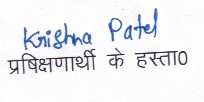 Krishna Patel
प्रषिक्षणार्थी के हस्ता०